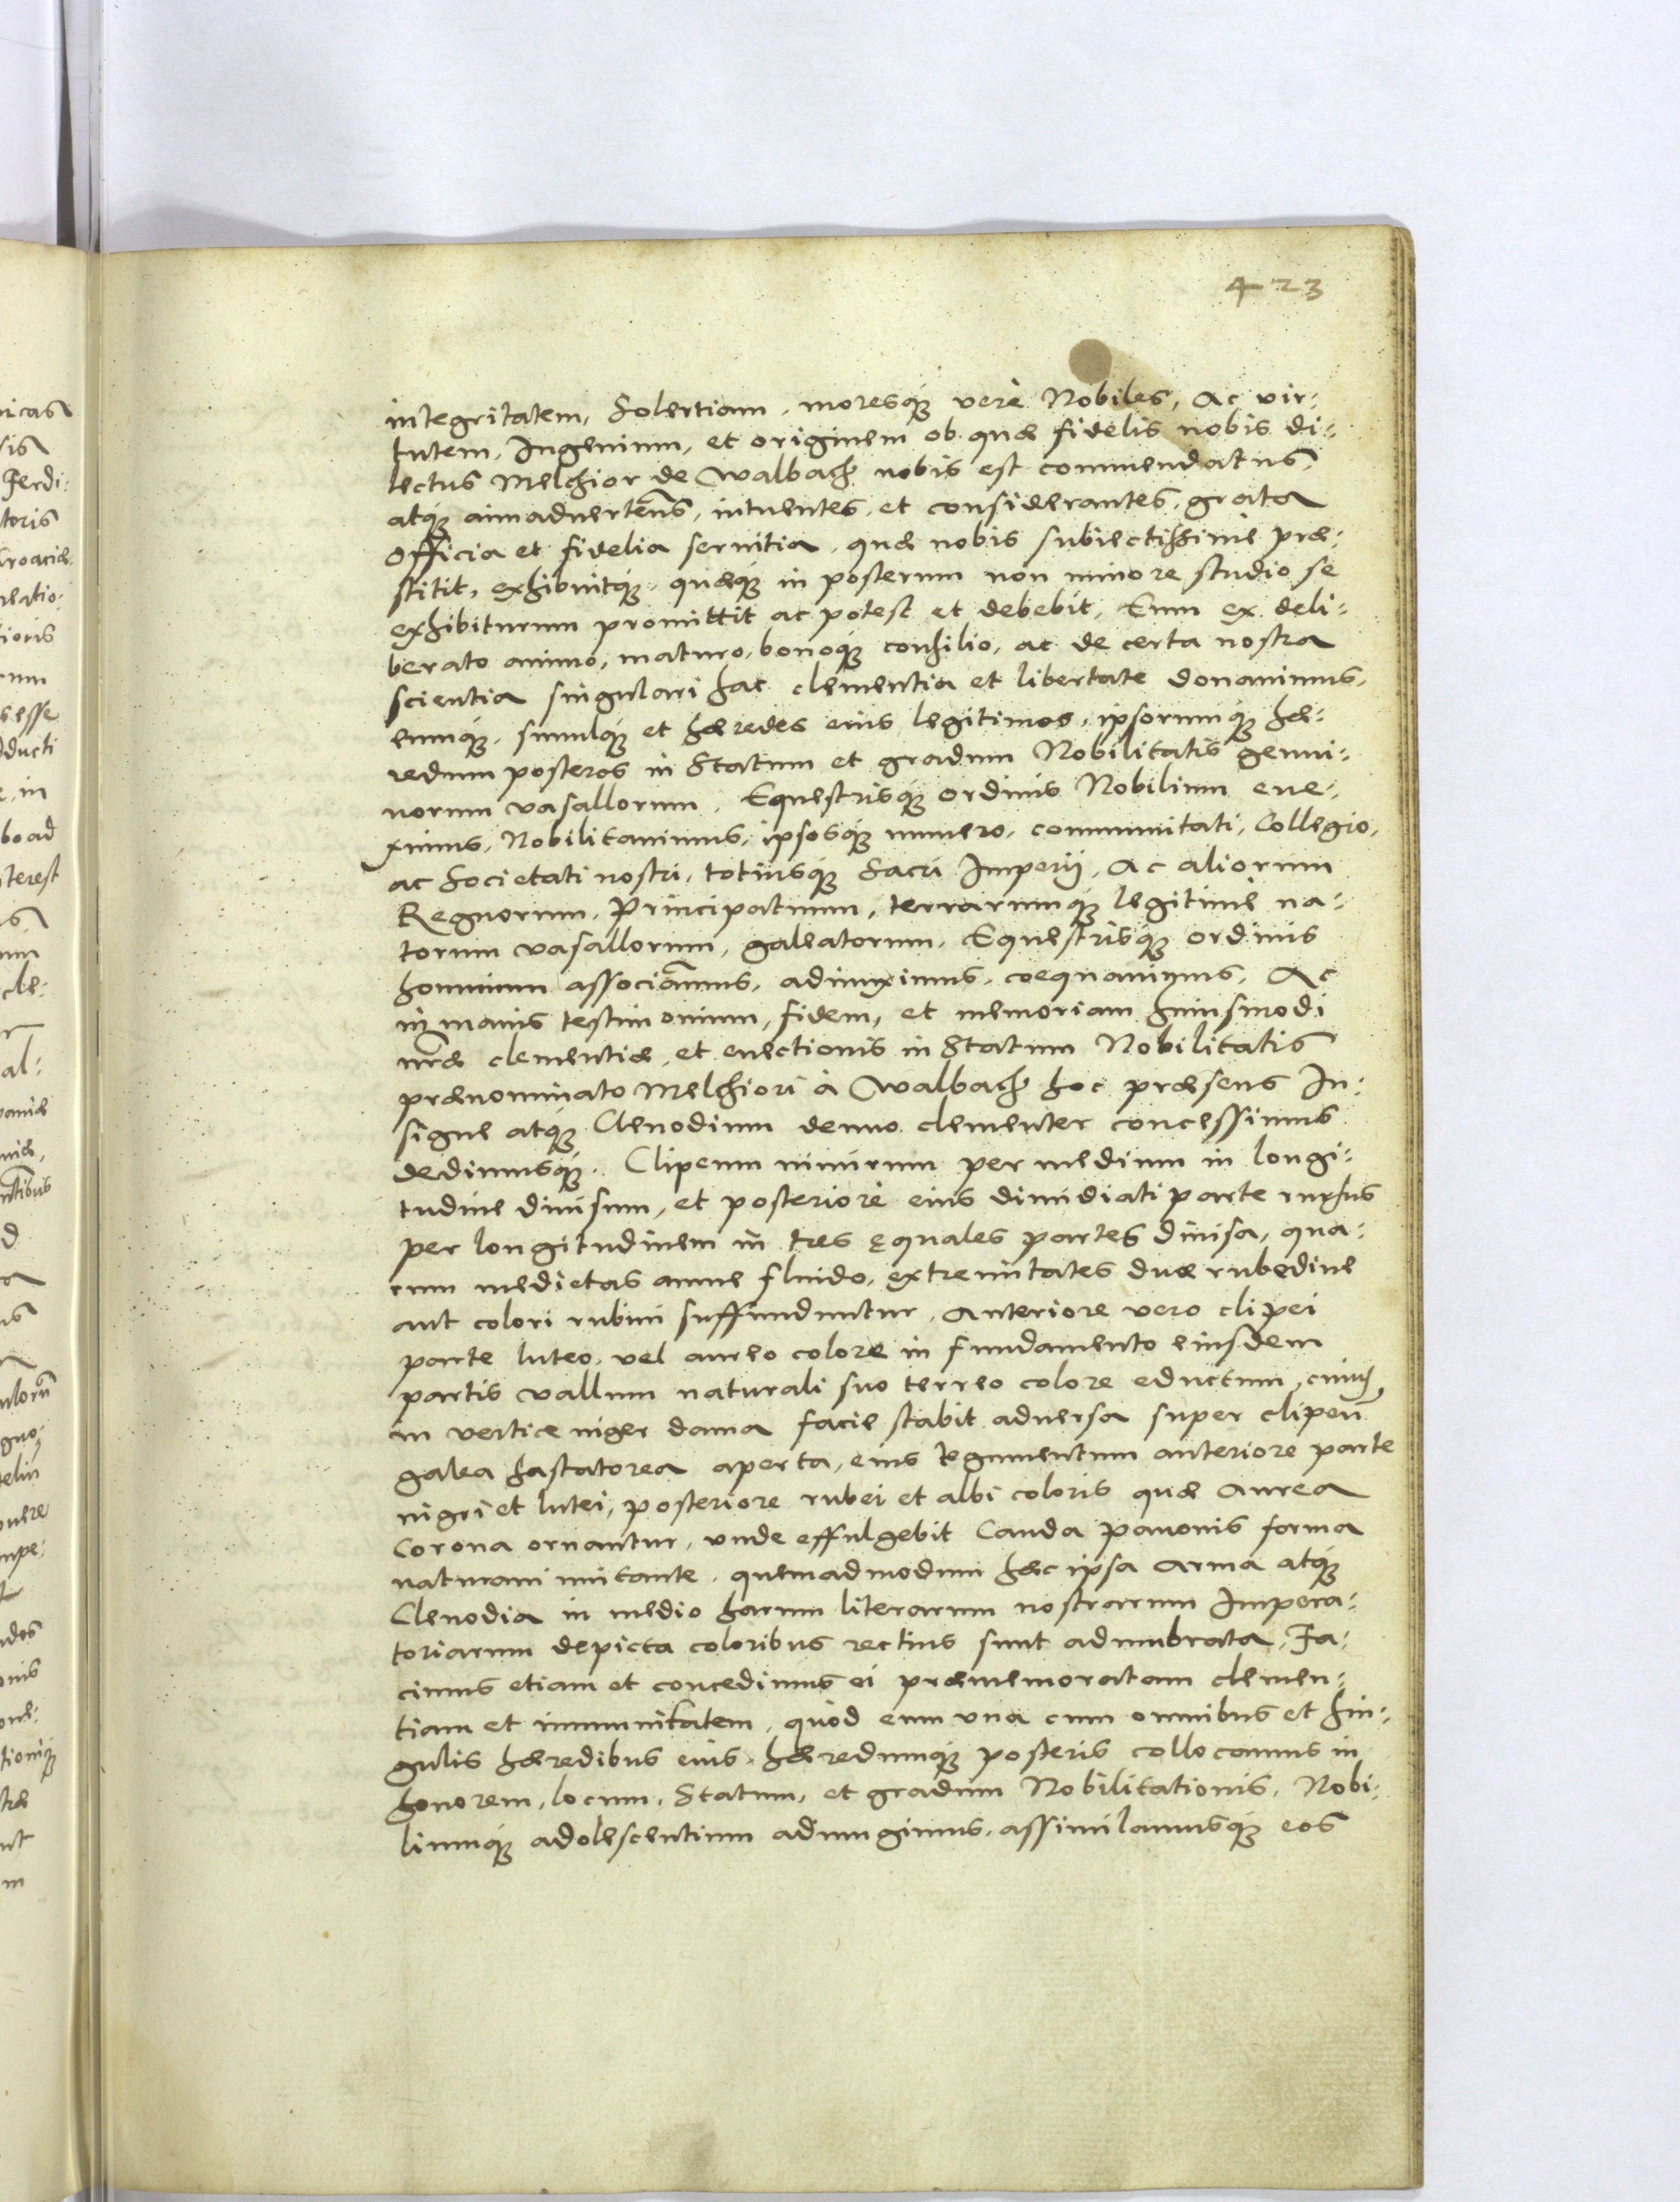 423
integritatem, Solertiam, moresq́; verè Nobiles, Ac vir:
tutem, Ingenium, et originem ob quæ fidelis nobis di:
lectus Melchior de Walbach nobis est commendatus,
atq́; aĩmadverteñs, intuentes, et considerantes, grata
Officia et fidelia seruitia, quæ nobis subiectissimè præ:
stitit, exhibuitq́;, quæq́; in posterum non minore studio se
exhibiturum promittit ac potest et debebit, Eum ex deli:
berato animo, maturo, bonoq́; consilio, ac de certa nostra
scientia singulari hac clementia et libertate donauimus,
eumq́;, simulq́; et hæredes eius legitimos, ipsorumq́; hæ:
redum posteros in Statum et gradum Nobilitatis genui:
norum vasallorum, Equestrisq́; ordinis Nobilium eue:
ximus, Nobilitauimus, ipsosq́; numero, communitati, Collegio,
ac Societati nostri, totiusq́; Sacri Imperij, Ac aliorum
Regnorum, Principatuum, terrarumq́; legitimè na:
torum vasallorum, galeatorum, Equestrisq́; ordinis
hominum associãmus, adiunximus, coequauimus, Ac
in maius testimonium, fidem, et memoriam huiusmodi
nr̃æ clementiæ, et euectionis in Statum Nobilitatis
prænominato Melchiori à Walbach hoc præsens In:
signe atq́; Clenodium denuo clementer concessimus
dedimusq́;. Clipeum nimirum per medium in longi:
tudine diuisum, et posteriore eius dimidiati parte rursus
per longitudinem in tres ęquales partes diuisa, qua:
rum medietas amne fluido, extremitates duæ rubedine
aut colori rubini suffunduntur, Anteriore vero clipei
parte luteo, vel aureo colore in fundamento eiusdem
partis vallum naturali suo terreo colore eductum, cuius
in vertice niger dama facie stabit aduersa super clipeũ
galea hastatorea aperta, eius tegumentum anteriore parte
nigri et lutei, posteriore rubei et albi coloris quæ Aurea
Corona ornantur, vnde effulgebit Cauda pauonis forma
naturam imitante, quemadmodum hæc ipsa Arma atq́;
Clenodia in medio harum literarum nostrarum Impera:
toriarum depicta coloribus rectius sunt adumbrata, Fa:
cimus etiam et concedimus ei præmemoratam clemen:
tiam et immunitatem, quòd eum vna cum omnibus et sin:
gulis hæredibus eius, hæredumq́; posteris collocamus in
honorem, locum, Statum, et gradum Nobilitationis, Nobi:
liumq́; adolescentium adiungimus, assimilamusq́; eos